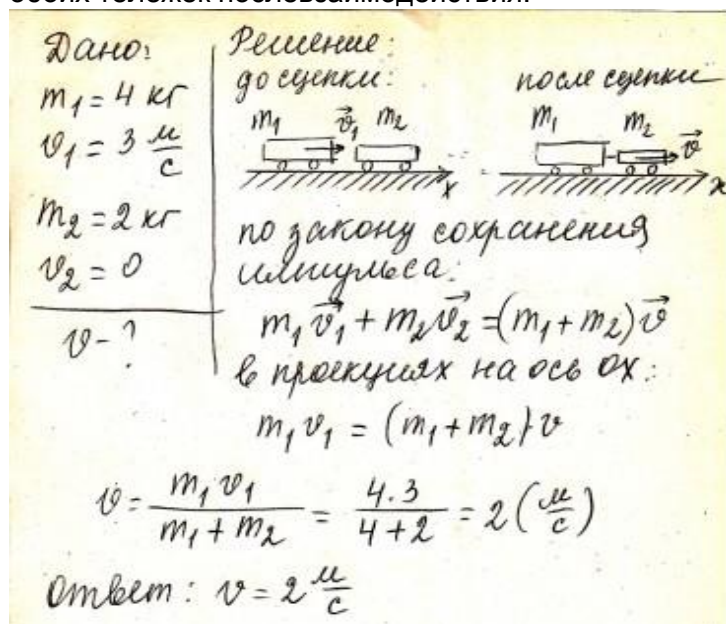 обоих тележек после взаимодействия.
Дано:
m₁ = 4 кг
v₁ = 3 м/с
m₂ = 2 кг
v₂ = 0
v - ?
Решение:
до сцепки:
m₁ v⃗₁ m₂
x
после сцепки
m₁ m₂ v⃗
x
по закону сохранения
импульса:
m₁v⃗₁ + m₂v⃗₂ = (m₁ + m₂)v⃗
в проекциях на ось ОХ:
m₁v₁ = (m₁ + m₂)·v
v = m₁v₁ / (m₁ + m₂) = 4·3 / (4+2) = 2 (м/с)
Ответ: v = 2 м/с